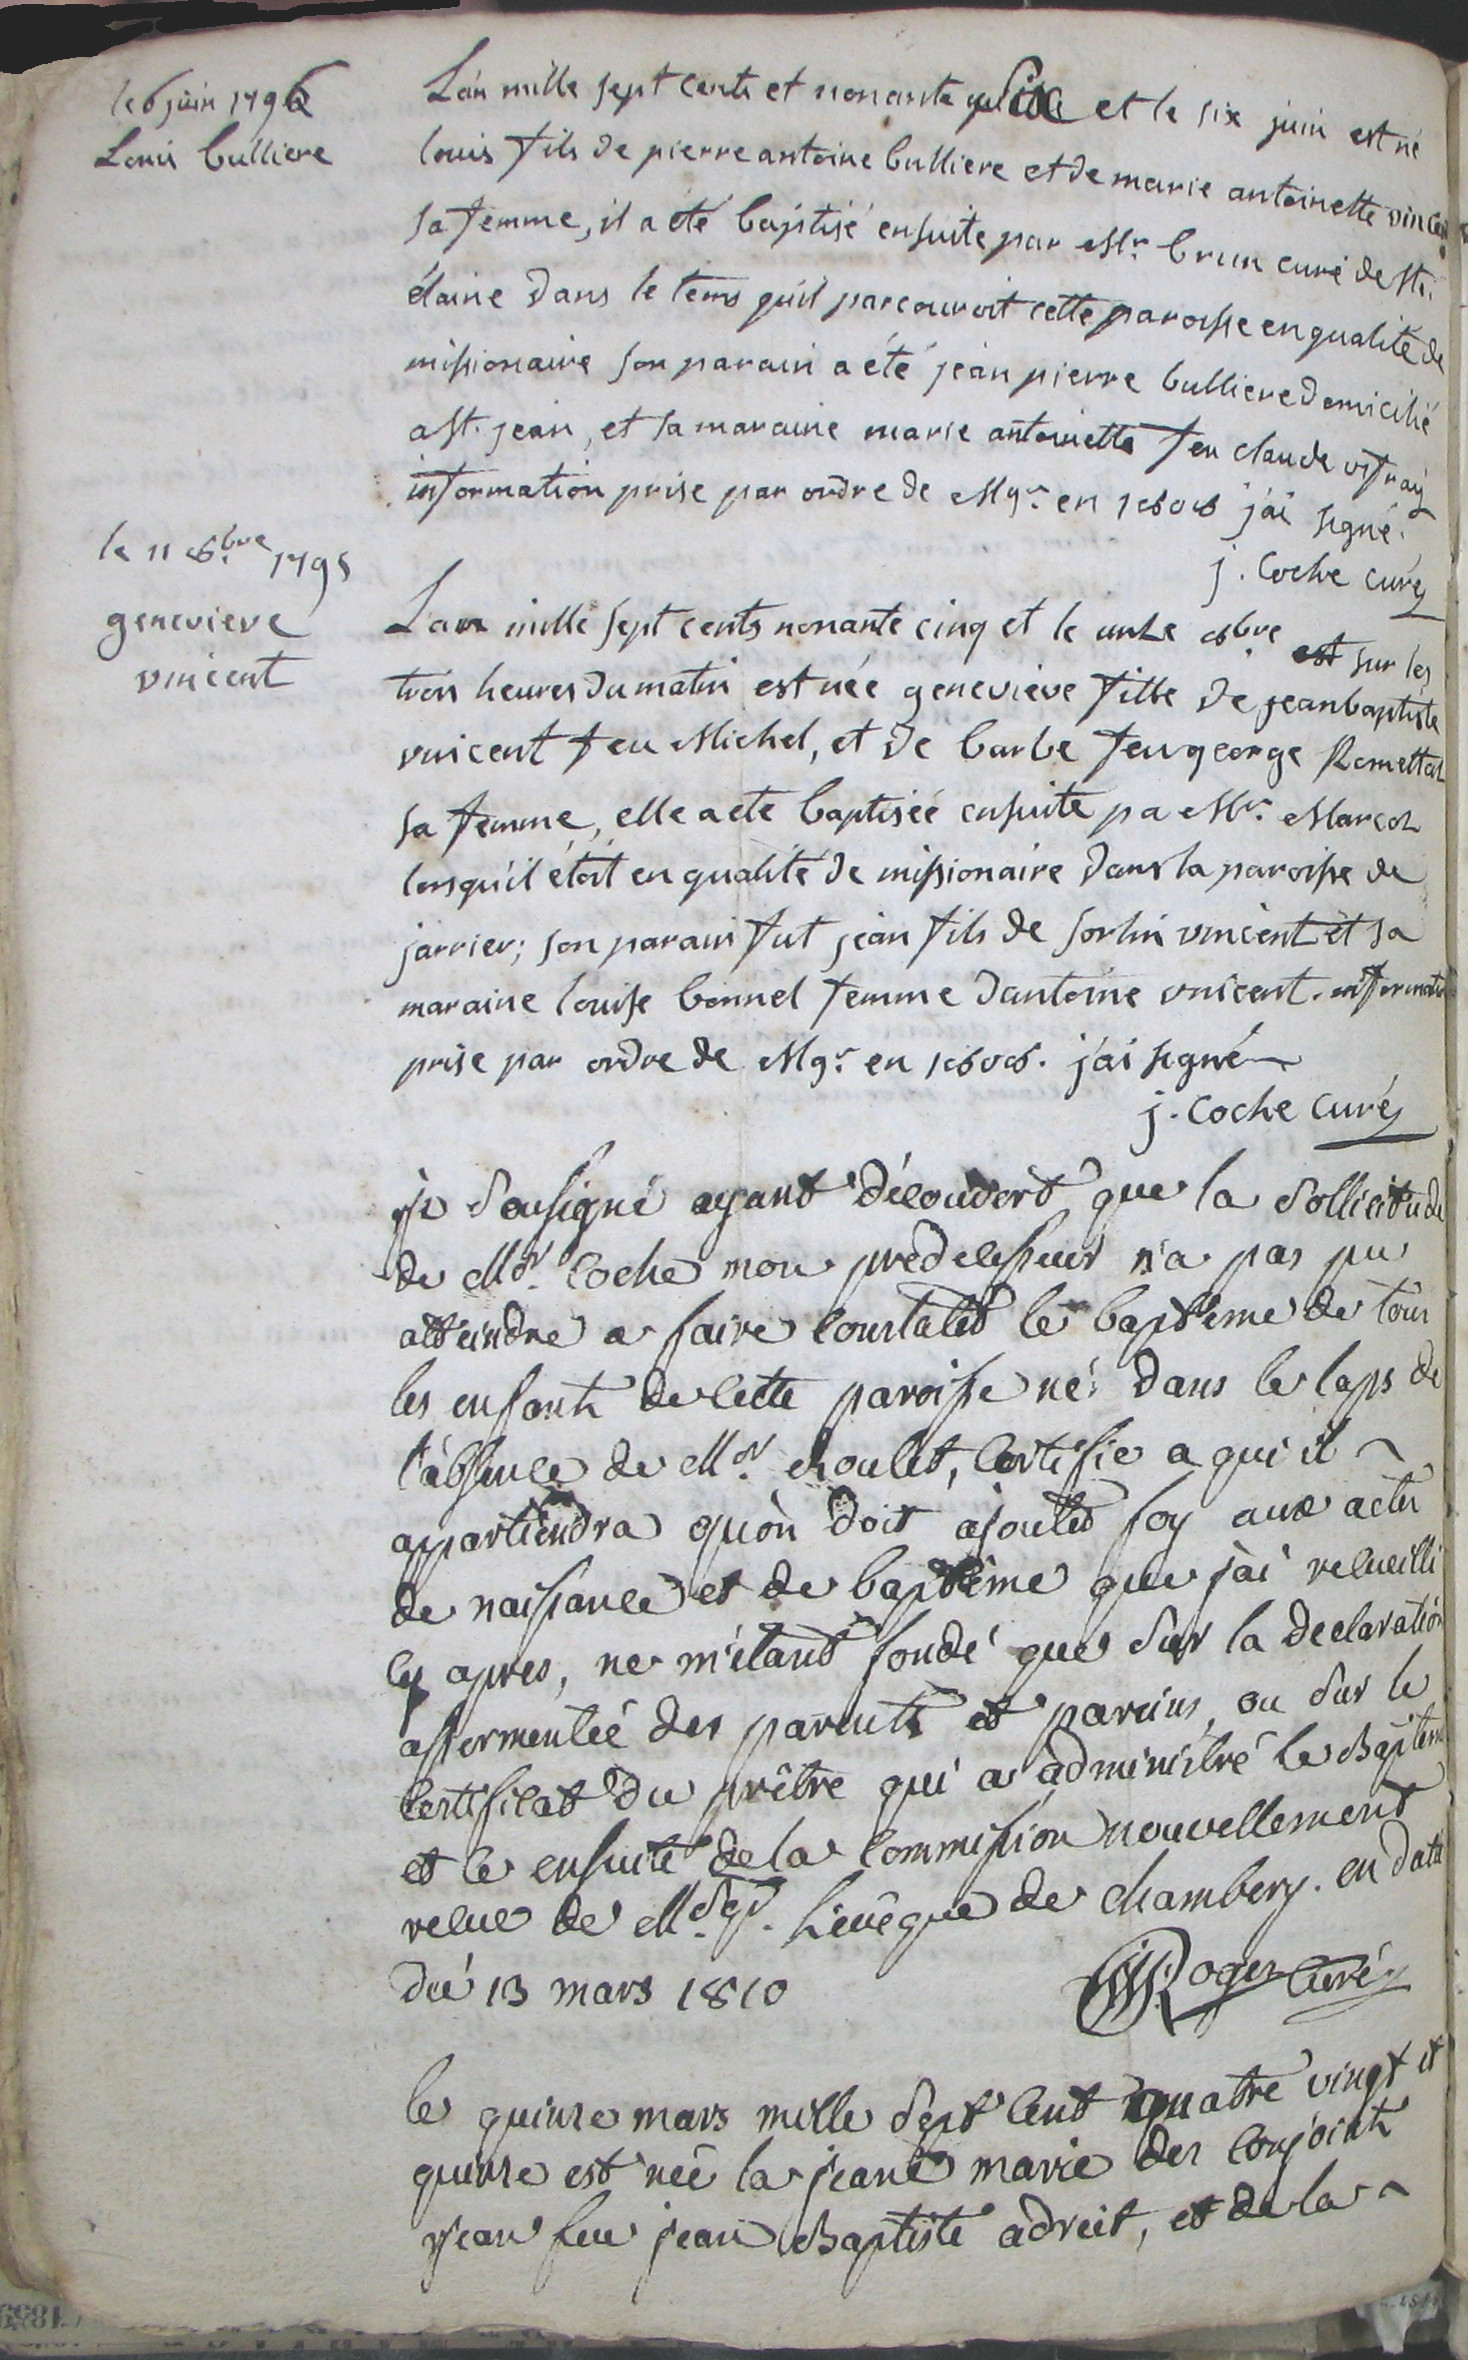 le 6 juin 1796
Louis bulliere
L'an mille sept cents et nonante six et le six juin est né
louis fils de pierre antoine bulliere et de marie antoinette vincent
sa femme, il a été baptisé ensuite par Mr. brun curé de st.
élaine dans le tems qu'il parcouroit cette paroisse en qualité de
missionaire son parain a été jean pierre bulliere domicilié
a st. jean, et sa maraine marie antoinette feu claude
information prise par ordre de Mgr. en 1808 j'ai signé.
j. Coche curé
le 11 8.bre 1795
genevieve
vincent
L'an mille sept cents nonante cinq et le onze 8bre est sur les
trois heures du matin est née genevieve fille de jean baptiste
vincent feu Michel, et de barbe feu george Ramettaz
sa femme, elle a eté baptiséé ensuite pa Mr. Marcoz
lorsqu'il étoit en qualité de missionaire dans la paroisse de
jarrier; son parain fut jean fils de sorlin vincent et sa
maraine louise bonnel femme d'antoine vincent. information
prise par ordre de Mgr. en 1808. j'ai signé
j. Coche curé
je sousigné ayant découvert que la sollicitude
de Mr. Coche mon prédécesseur n'a pas pu
atteindre a faire constater le baptême de tous
les enfants de cette paroisse né dans le laps de
l'absence de Mr. choulet, certifie a qui il
appartiendra qu'on doit ajouter foy aux actes
de naissance et de baptême que j'ai recueilli
cy apres, ne m'étant fondé que sur la declaration
assermentéé des parents et parains, ou sur le
certificat du prêtre qui a administré le Baptême
et ce ensuite de la commission nouvellement
recue de M.sgr. l'evêque de chambery. en date
du 13 mars 1810
Roger curé
le quinze mars mille sept cent quatre vingt et
quinze est née la jeane marie des conjoints
jean feu jean Baptiste adreit, et de la